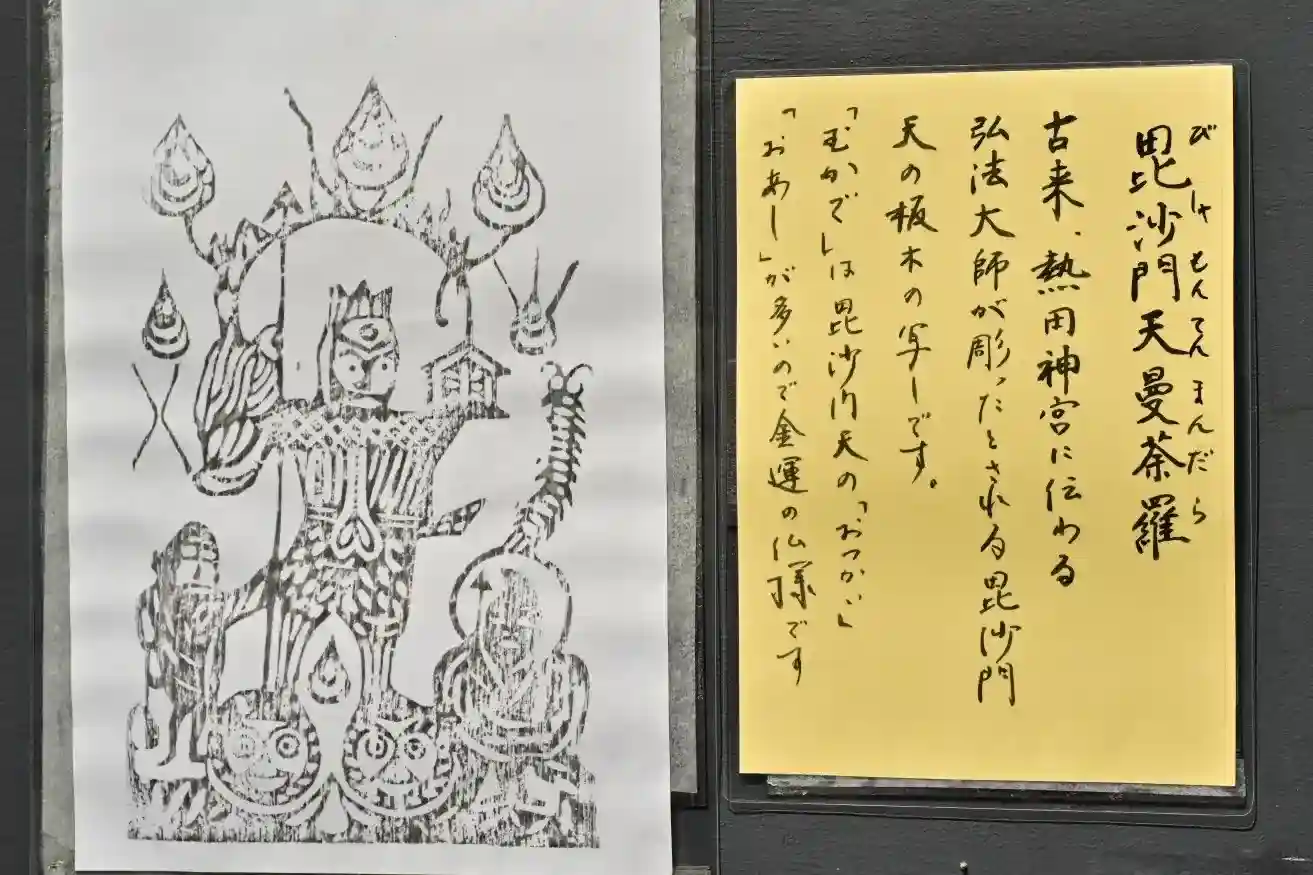 毘沙門天曼荼羅
びしゃもんてんまんだら
古来、熱田神宮に伝わる
弘法大師が彫ったとされる毘沙門
天の板木の写しです。
「むかで」は毘沙門天の「おつかい」
「おあし」が多いので金運の仏様です